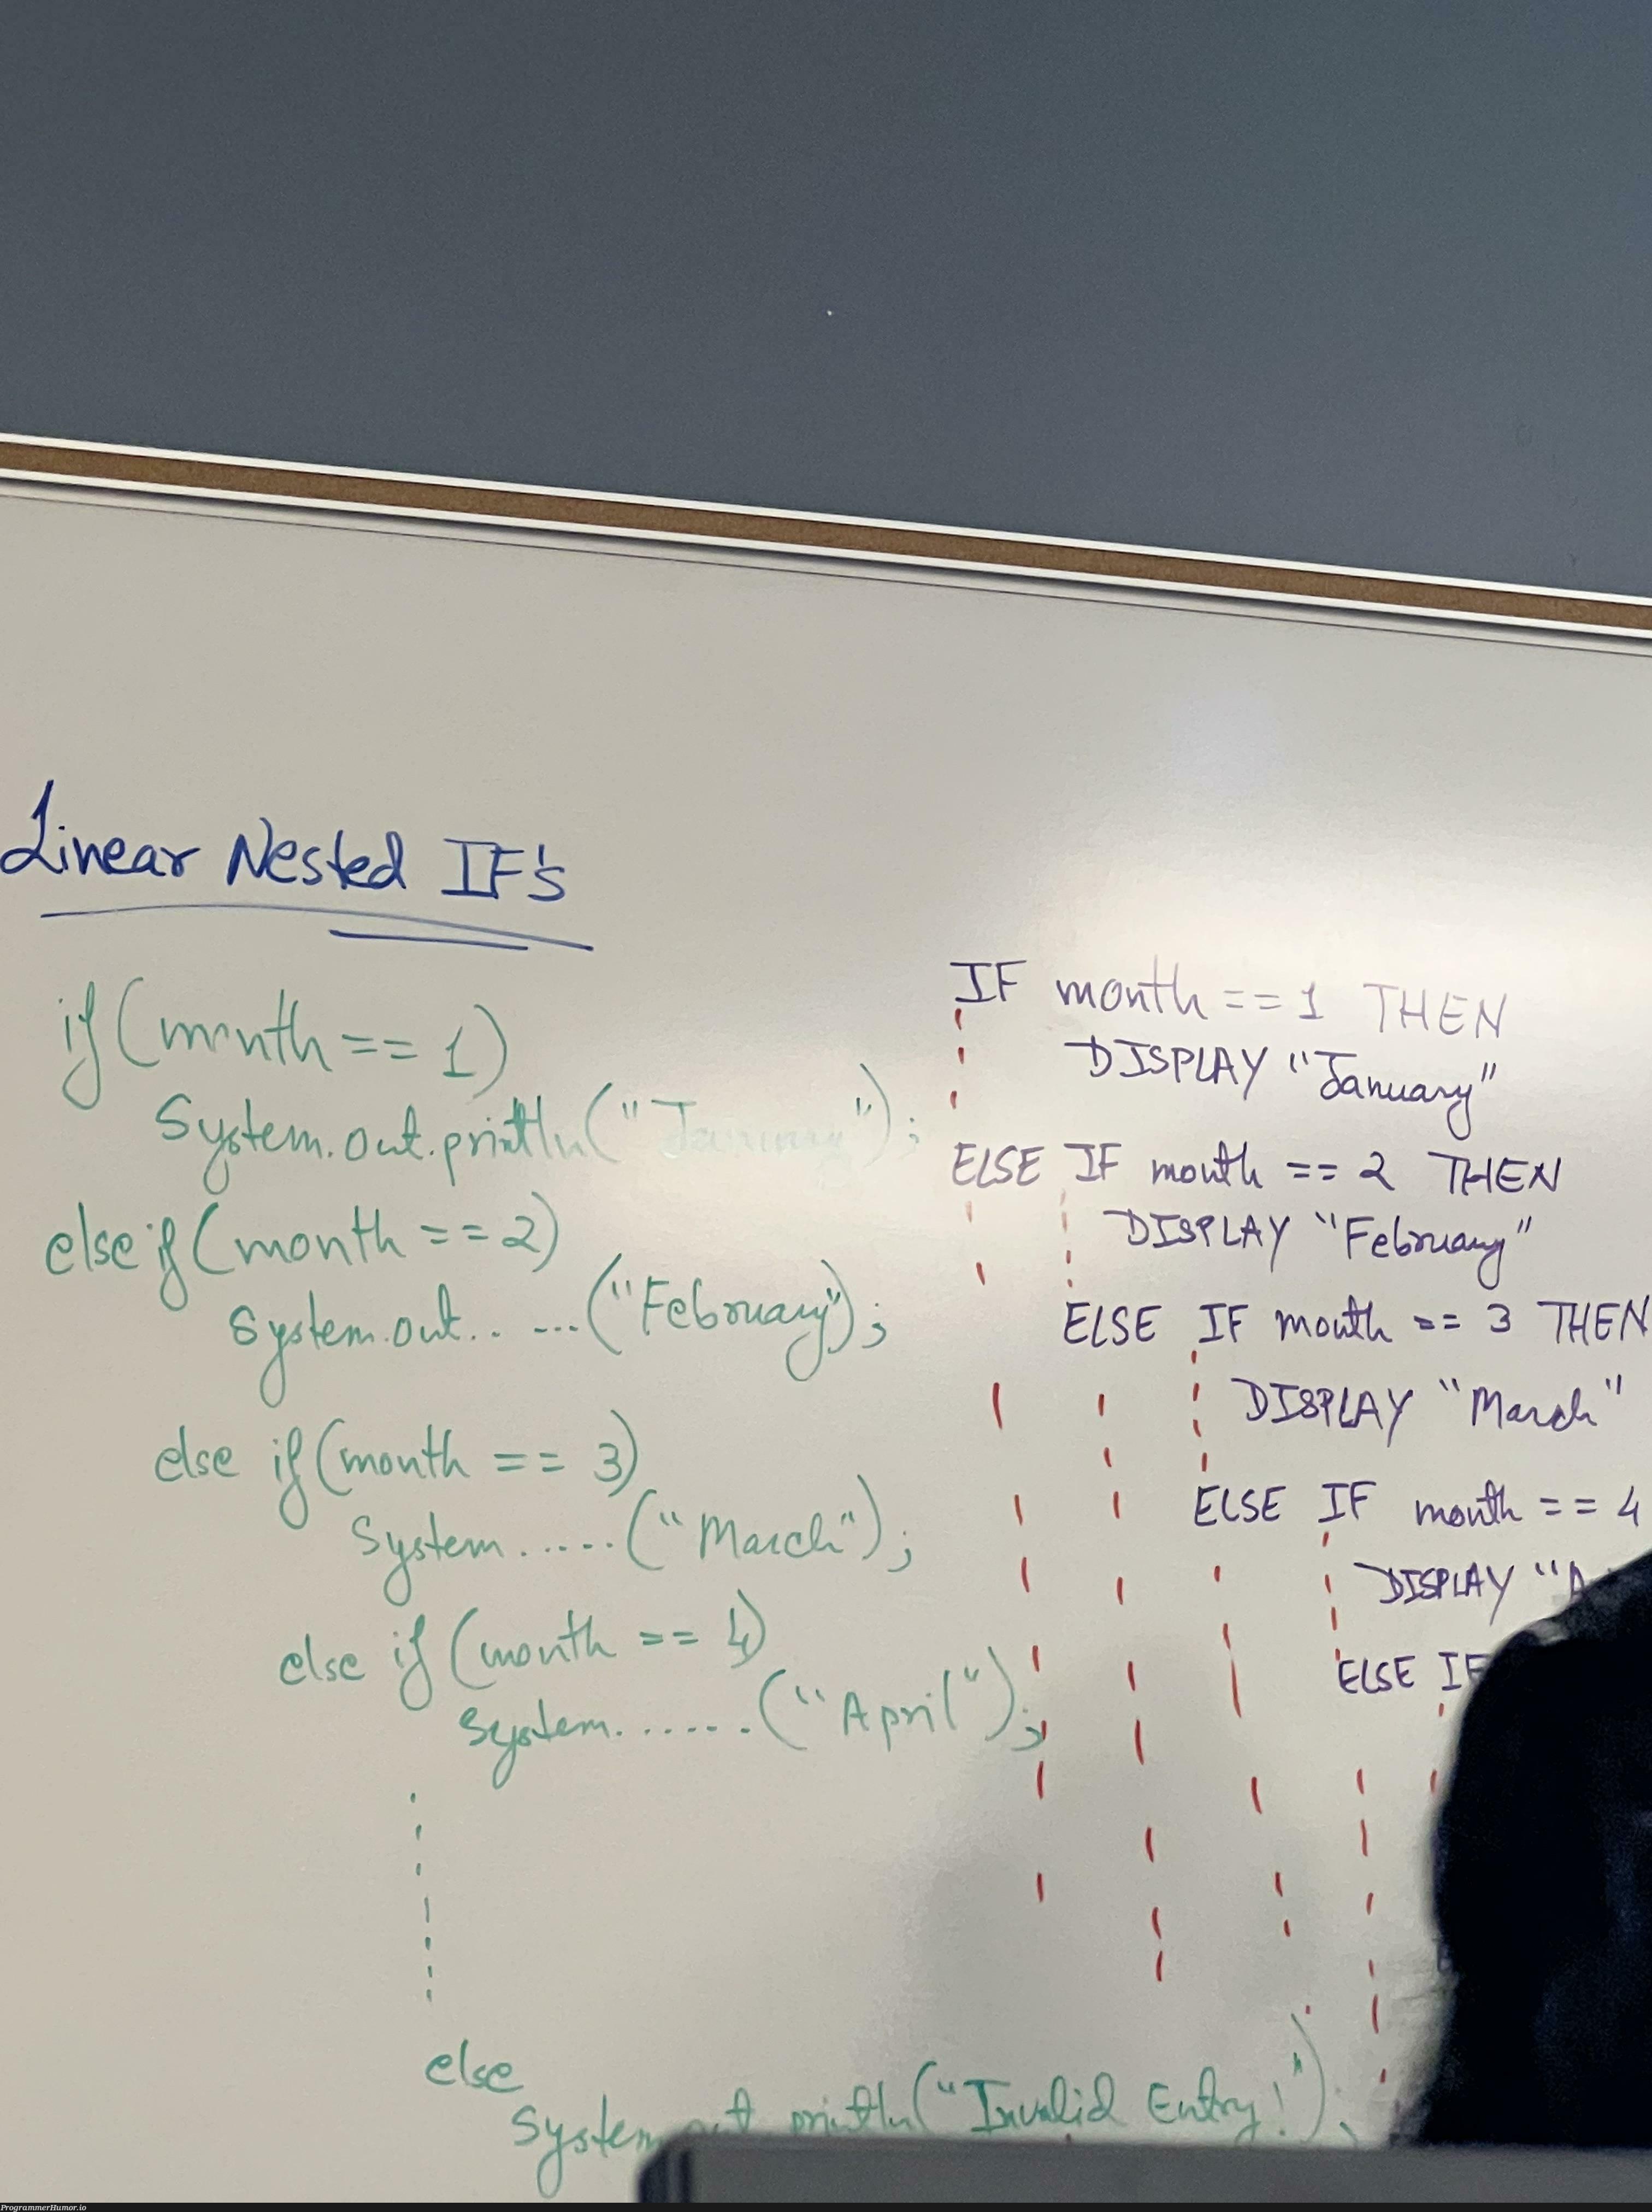 Linear Nested IF's
if(month == 1)
System.out.println("January");
else if(month == 2)
System.out.. ...("February");
else if(month == 3)
System......("March");
else if(month == 4)
System.......("April");
else
System.out.println("Invalid Entry!");
IF month == 1 THEN
DISPLAY "January"
ELSE IF month == 2 THEN
DISPLAY "February"
ELSE IF month == 3 THEN
DISPLAY "March"
ELSE IF month == 4
DISPLAY "A
ELSE IF
ProgrammerHumor.io